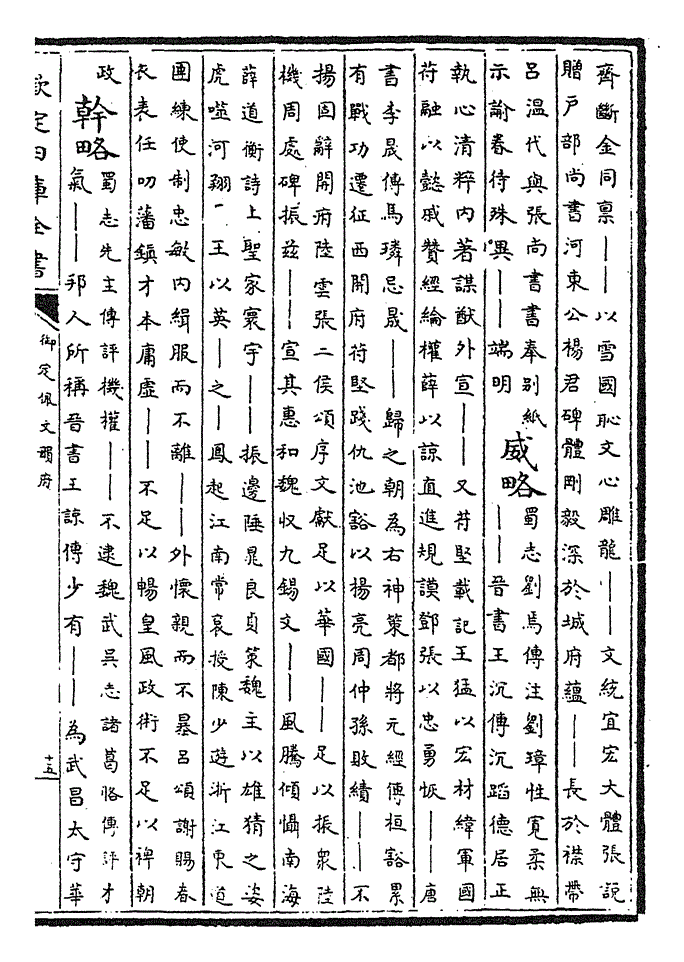 齊斷金同禀——以雪國恥文心雕龍——文統宜宏大體張説
贈戶部尚書河東公楊君碑體剛毅深於城府蘊——長於襟帶
呂溫代與張尚書書奉別紙
示諭眷待殊異——端明
威略
蜀志劉焉傳注劉璋性寛柔無
——晉書王沉傳沉蹈德居正
執心清粹内著謀猷外宣——又苻堅載記王猛以宏材緯軍國
苻融以懿戚贊經綸權薛以諒直進規謨鄧張以忠勇恢——唐
書李晟傳馬璘忌晟——歸之朝為右神策都將元經傳桓豁累
有戰功遷征西開府苻堅踐仇池豁以楊亮周仲孫敗績——不
揚固辭開府陸雲張二侯頌序文獻足以華國——足以振衆陸
機周處碑振兹——宣其惠和魏收九錫文——風騰傾懾南海
薛道衡詩上聖家寰宇——振邊陲晁良貞策魏主以雄猜之姿
虎噬河翔一王以英—之—鳳起江南常衮授陳少遊浙江東道
團練使制忠敏内緝服而不離——外懷親而不暴呂頌謝賜春
衣表任叨藩鎮才本庸虚——不足以暢皇風政術不足以裨朝
政
幹略
蜀志先主傳評機權——不逮魏武吳志諸葛恪傳評才
氣——邦人所稱晉書王諒傳少有——為武昌太守華
欽定四庫全書
御定佩文韻府
十五